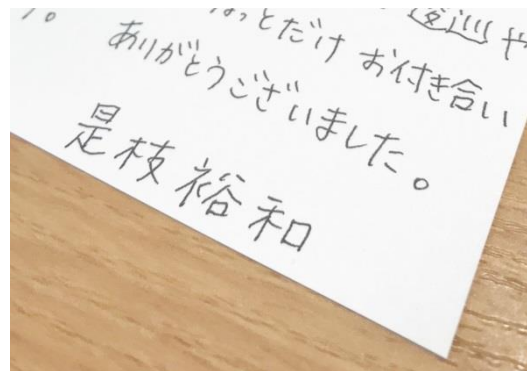 逡巡や
っとだけお付き合い
ありがとうございました。
是枝裕和